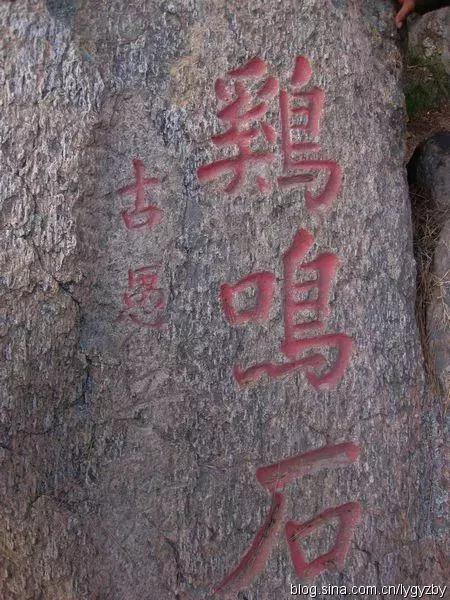 鷄鳴石
古愚
blog.sina.com.cn/lygyzby